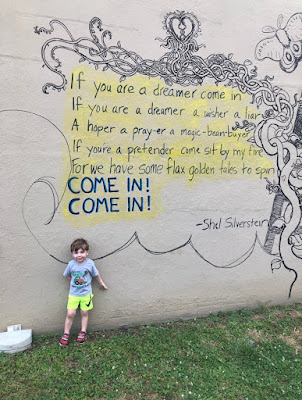 If you are a dreamer come in
If you are a dreamer a wisher a liar
A hoper a pray-er a magic-bean-buyer
If youre a pretender come sit by my fire
For we have some flax golden tales to spin
COME IN!
COME IN!
-Shel Silverstein